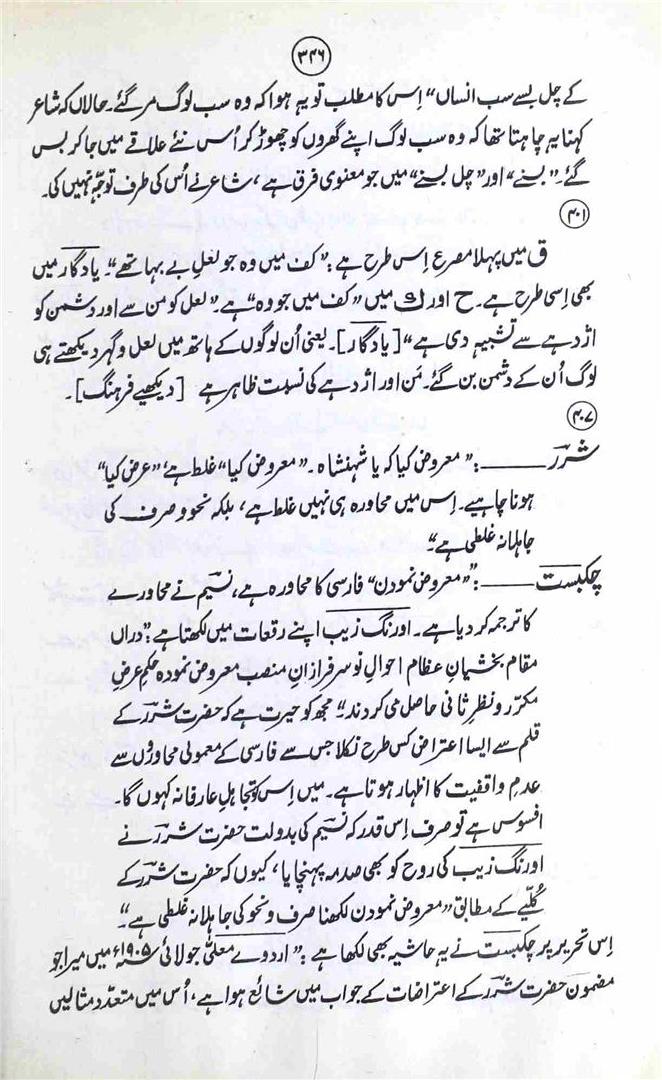 ۳۴۶
کے چل بسے سب انساں“ اِس کا مطلب تو یہ ہوا کہ وہ سب لوگ مر گئے۔ حالاں کہ شاعر
کہنا یہ چاہتا تھا کہ وہ سب لوگ اپنے گھروں کو چھوڑ کر اُس نئے علاقے میں جا کر بس
گئے۔ ”بسنے“ اور ”چل بسنے“ میں جو معنوی فرق ہے، شاعر نے اُس کی طرف توجّہ نہیں کی۔
۴۰۱
ق میں پہلا مصرع اِس طرح ہے: ”کف میں وہ جو لعلِ بے بہا تھے“۔ یادگار میں
بھی اِسی طرح ہے۔ ح اور ک میں ”کف میں جو وہ“ ہے۔ ”لعل کو من سے اور دشمن کو
اژدہے سے تشبیہ دی ہے“ [یادگار]۔ یعنی اُن لوگوں کے ہاتھ میں لعل و گہر دیکھتے ہی
لوگ اُن کے دشمن بن گئے۔ مَن اور اژدہے کی نسبت ظاہر ہے [دیکھیے فرہنگ]۔
۴۰۷
شررؔ ــــــــ: ”معروض کیا کہ یا شہنشاہ۔ ”معروض کیا“ غلط ہے، ”عرض کیا“
ہونا چاہیے۔ اِس میں محاورہ ہی نہیں غلط ہے، بلکہ نحو و صرف کی
جاہلانہ غلطی ہے“۔
چکبست ــــــــ: ””معروض نمودن“ فارسی کا محاورہ ہے، نسیمؔ نے محاورے
کا ترجمہ کر دیا ہے۔ اورنگ زیب اپنے رقعات میں لکھتا ہے: ”دراں
مقام بخشیانِ عظام احوالِ نو سرفرازانِ منصب معروض نمودہ حکمِ عرضِ
مکرّر و نظرِ ثانی حاصل می کردند“۔ مجھ کو حیرت ہے کہ حضرت شررؔ کے
قلم سے ایسا اعتراض کس طرح نکلا جس سے فارسی کے معمولی محاوروں سے
عدمِ واقفیت کا اظہار ہوتا ہے۔ میں اِس کو تجاہلِ عارفانہ کہوں گا۔
افسوس ہے تو صرف اِس قدر کہ نسیمؔ کی بدولت حضرت شررؔ نے
اورنگ زیب کی روح کو بھی صدمہ پہنچایا، کیوں کہ حضرت شررؔ کے
کُلّیے کے مطابق ”معروض نمودن لکھنا صرف و نحو کی جاہلانہ غلطی ہے“۔
اِس تحریر پر چکبست نے یہ حاشیہ بھی لکھا ہے: ”اردوے معلّٰی جولائی ۱۹۰۵ء میں میرا جو
مضمون حضرت شررؔ کے اعتراضات کے جواب میں شائع ہوا ہے، اُس میں متعدّد مثالیں